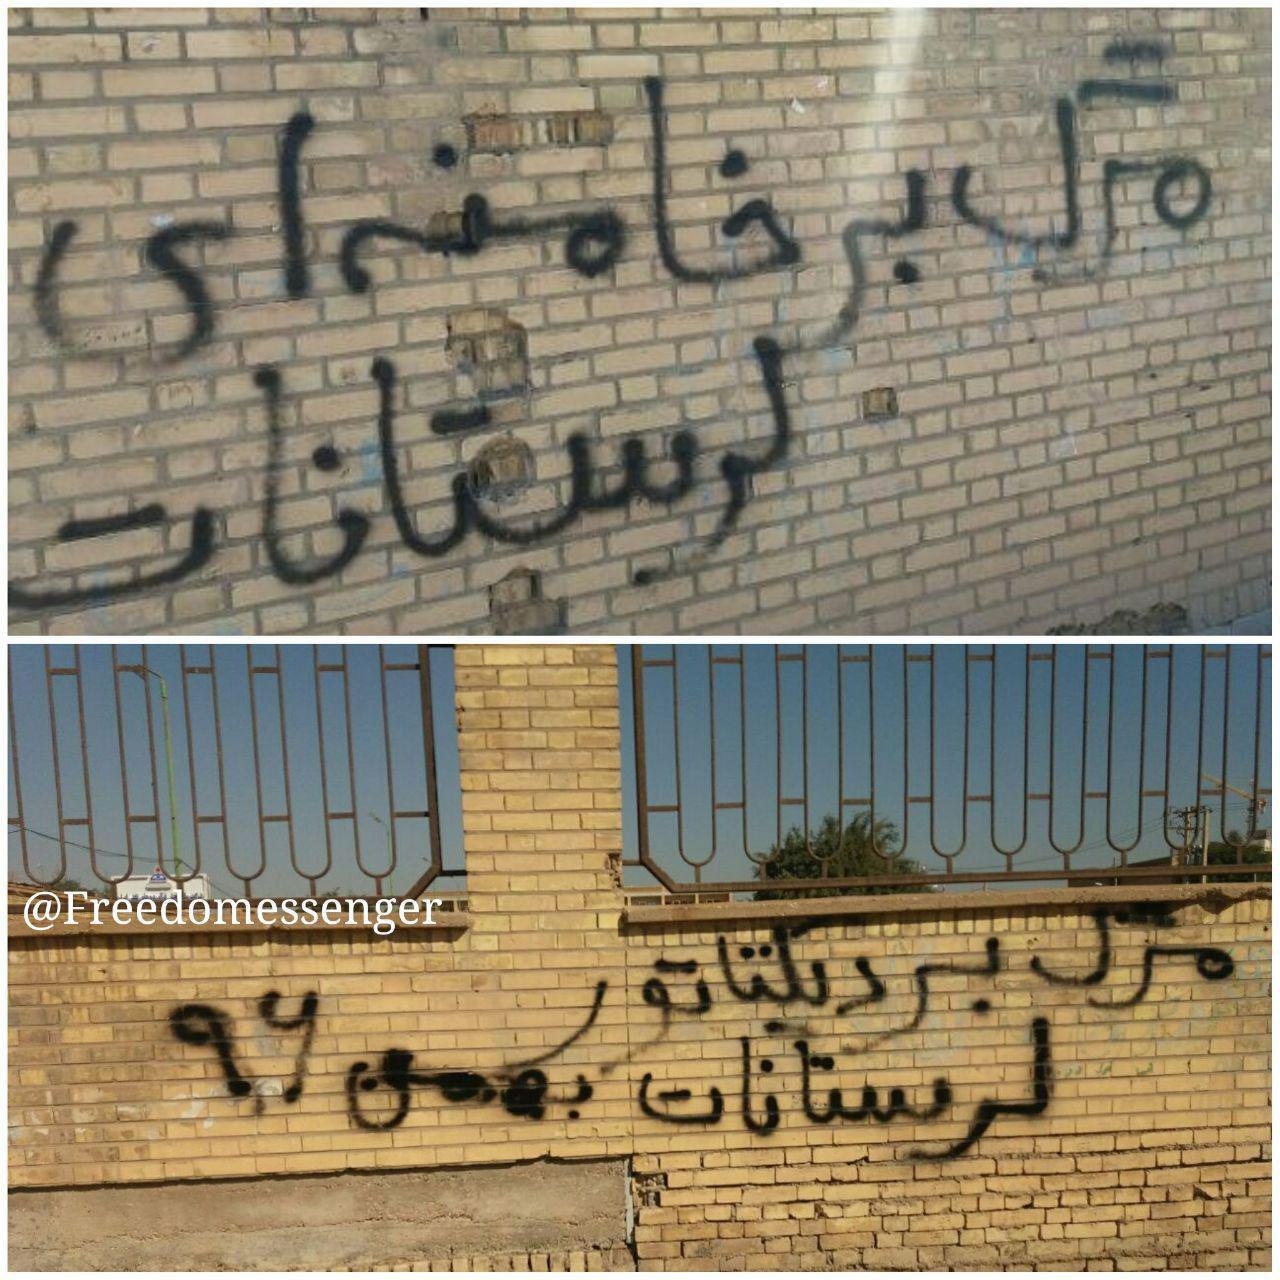 مرگ بر خامنه‌ای
لرستانات
@Freedomessenger
مرگ بر دیکتاتور
لرستانات بهمن ۹۶